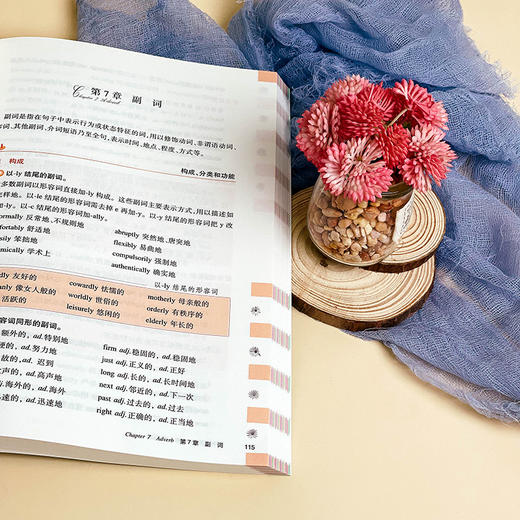 第 7 章 副 词
Chapter 7 Adverb
副词是指在句子中表示行为或状态特征的词,用以修饰动词、非谓语动词、
词、其他副词、介词短语乃至全句,表示时间、地点、程度、方式等。
构成
构成、分类和功能
以-ly 结尾的副词。
多数副词以形容词直接加-ly 构成。这些副词主要表示方式,用以描述如
样地。以-le 结尾的形容词需去掉 e 再加-y。以-y 结尾的形容词把 y 改
-ic 结尾的形容词加-ally。
normally 反常地、不规则地
abruptly 突然地、唐突地
fortably 舒适地
flexibly 易曲地
sily 笨拙地
compulsorily 强制地
mically 学术上
authentically 确实地
以-ly 结尾的形容词
dly 友好的
cowardly 怯懦的
motherly 母亲般的
anly 像女人般的
worldly 世俗的
orderly 有秩序的
活跃的
leisurely 悠闲的
elderly 年长的
容词同形的副词。
额外的, ad.特别地
firm adj.稳固的, ad.稳固地
便的, ad.努力地
just adj.正义的, ad.正好
故的, ad. 迟到
long adj.长的, ad.长时间地
声的, ad.高声地
next adj.邻近的, ad.下一次
海外的, ad.海外
past adj.过去的, ad.过去
迅速的, ad.迅速地
right adj.正确的, ad.正当地
Chapter 7 Adverb 第 7 章 副 词
115